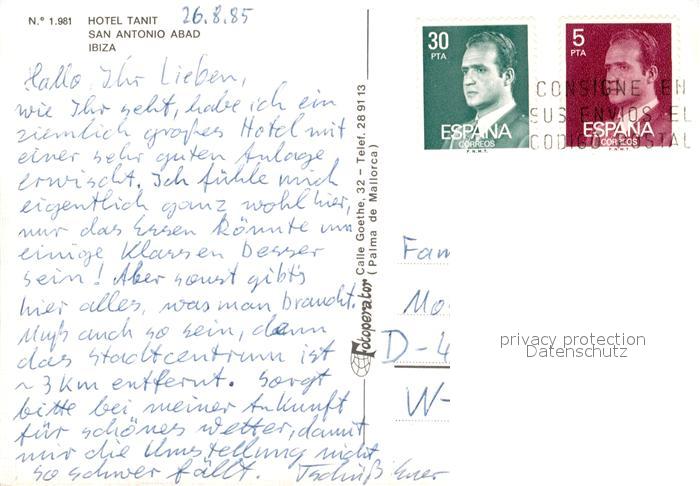 N.º 1.981 HOTEL TANIT
SAN ANTONIO ABAD
IBIZA
26.8.85
Hallo, Ihr Lieben,
wie Ihr seht, habe ich ein
ziemlich großes Hotel mit
einer sehr guten Anlage
erwischt. Ich fühle mich
eigentlich ganz wohl hier,
nur das Essen könnte um
einige Klassen besser
sein! Aber sonst gibt's
hier alles, was man braucht.
Muß auch so sein, denn
das Stadtcentrum ist
~ 3 km entfernt. Sorgt
bitte bei meiner Ankunft
für schönes Wetter, damit
mir die Umstellung nicht
so schwer fällt. Tschüß Euer
Fotoperator Calle Goethe, 32 – Telef. 28 91 13
(Palma de Mallorca)
30
PTA
ESPAÑA
CORREOS
F.N.M.T.
5
PTA
ESPAÑA
CORREOS
F.N.M.T.
CONSIGNE EN
SUS ENVIOS EL
CODIGO POSTAL
Fam
Mo
D-4
W-
privacy protection
Datenschutz